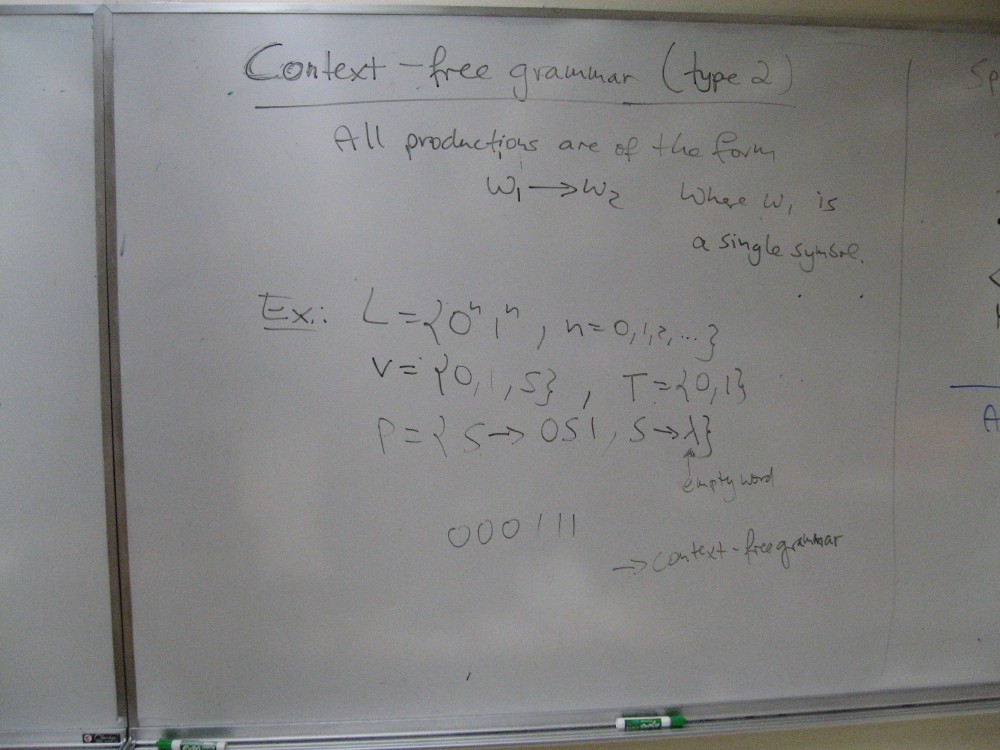 Context-free grammar (type 2)
All productions are of the form
w₁ → w₂ where w₁ is
a single symbol.
Ex.: L = {0ⁿ1ⁿ, n = 0,1,2,...}
V = {0,1,S}, T = {0,1}
P = {S → 0S1, S → λ}
empty word
000111
→ context-free grammar
Sp
A